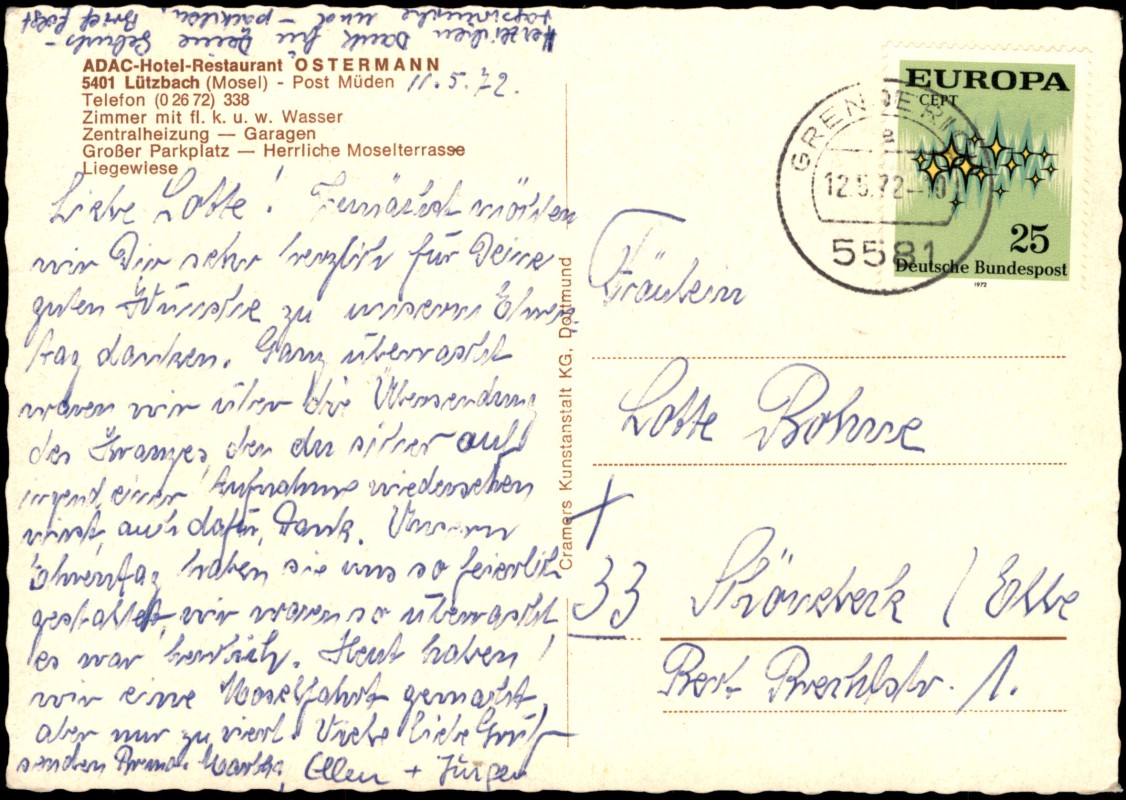 Herzlichen Dank für Deine Geburts-
tagswünsche und - päckchen, Brief folgt
ADAC-Hotel-Restaurant OSTERMANN
5401 Lützbach (Mosel) - Post Müden 11.5.72.
Telefon (0 26 72) 338
Zimmer mit fl. k. u. w. Wasser
Zentralheizung — Garagen
Großer Parkplatz — Herrliche Moselterrasse
Liegewiese
Liebe Lotte! Zunächst möchten
wir Dir sehr herzlich für Deine
guten Wünsche zu unserem Ehren-
tag danken. Ganz überrascht
waren wir über die Übersendung
des Kranzes, den du sicher auf
irgend einer Aufnahme wiedersehen
wirst, auch dafür Dank. Unseren
Ehrentag haben sie uns so feierlich
gestaltet, wir waren so überrascht
es war herrlich. Heut haben
wir eine Moselfahrt gemacht,
aber nur zu viert. Viele liebe Grüße
senden Martha, Ellen + Jürgen
Cramers Kunstanstalt KG, Dortmund
EUROPA
CEPT
25
Deutsche Bundespost
1972
GRENDERICH
a
12.5.72-10
5581
Fräulein
Lotte Bohne
+
33 Schönebeck / Elbe
Bert- Brechtstr. 1.